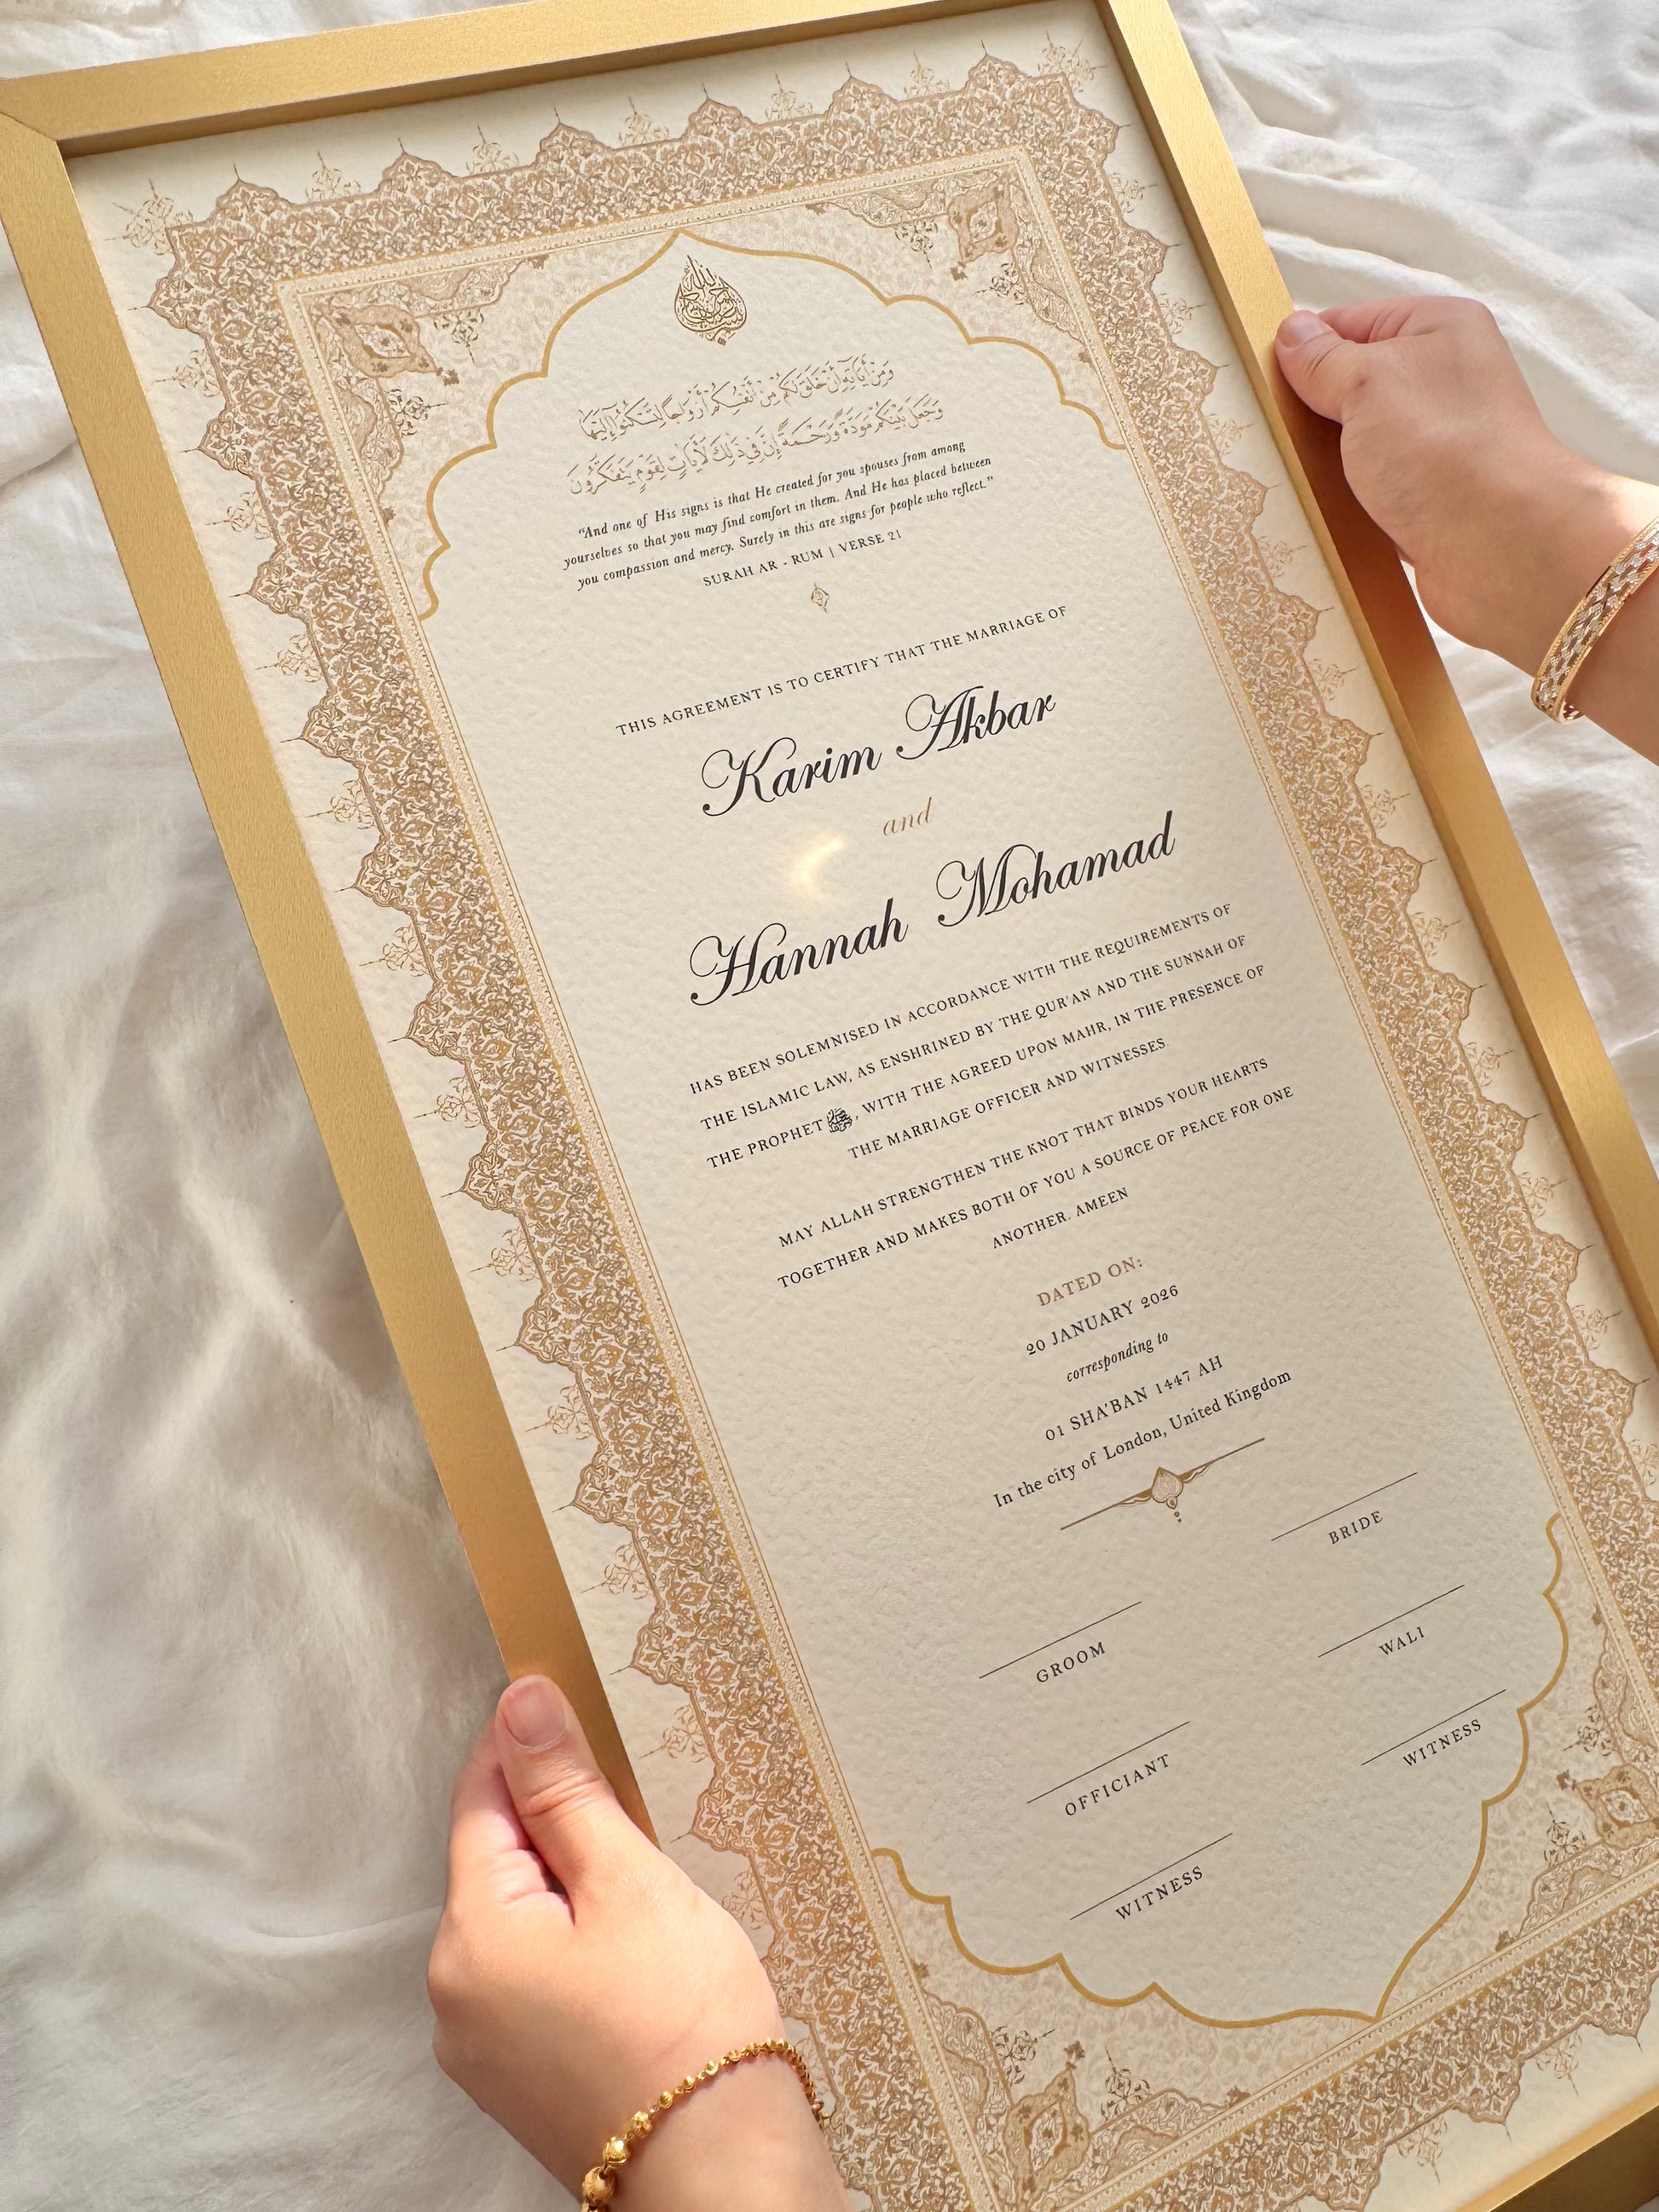 وَمِنْ آيَاتِهِ أَنْ خَلَقَ لَكُم مِّنْ أَنفُسِكُمْ أَزْوَاجًا لِّتَسْكُنُوا إِلَيْهَا
وَجَعَلَ بَيْنَكُم مَّوَدَّةً وَرَحْمَةً إِنَّ فِي ذَٰلِكَ لَآيَاتٍ لِّقَوْمٍ يَتَفَكَّرُونَ
“And one of His signs is that He created for you spouses from among
yourselves so that you may find comfort in them. And He has placed between
you compassion and mercy. Surely in this are signs for people who reflect.”
SURAH AR - RUM | VERSE 21
THIS AGREEMENT IS TO CERTIFY THAT THE MARRIAGE OF
Karim Akbar
and
Hannah Mohamad
HAS BEEN SOLEMNISED IN ACCORDANCE WITH THE REQUIREMENTS OF
THE ISLAMIC LAW, AS ENSHRINED BY THE QUR'AN AND THE SUNNAH OF
THE PROPHET ﷺ, WITH THE AGREED UPON MAHR, IN THE PRESENCE OF
THE MARRIAGE OFFICER AND WITNESSES.
MAY ALLAH STRENGTHEN THE KNOT THAT BINDS YOUR HEARTS
TOGETHER AND MAKES BOTH OF YOU A SOURCE OF PEACE FOR ONE
ANOTHER. AMEEN
DATED ON:
20 JANUARY 2026
corresponding to
01 SHA'BAN 1447 AH
In the city of London, United Kingdom
BRIDE
GROOM
WALI
OFFICIANT
WITNESS
WITNESS